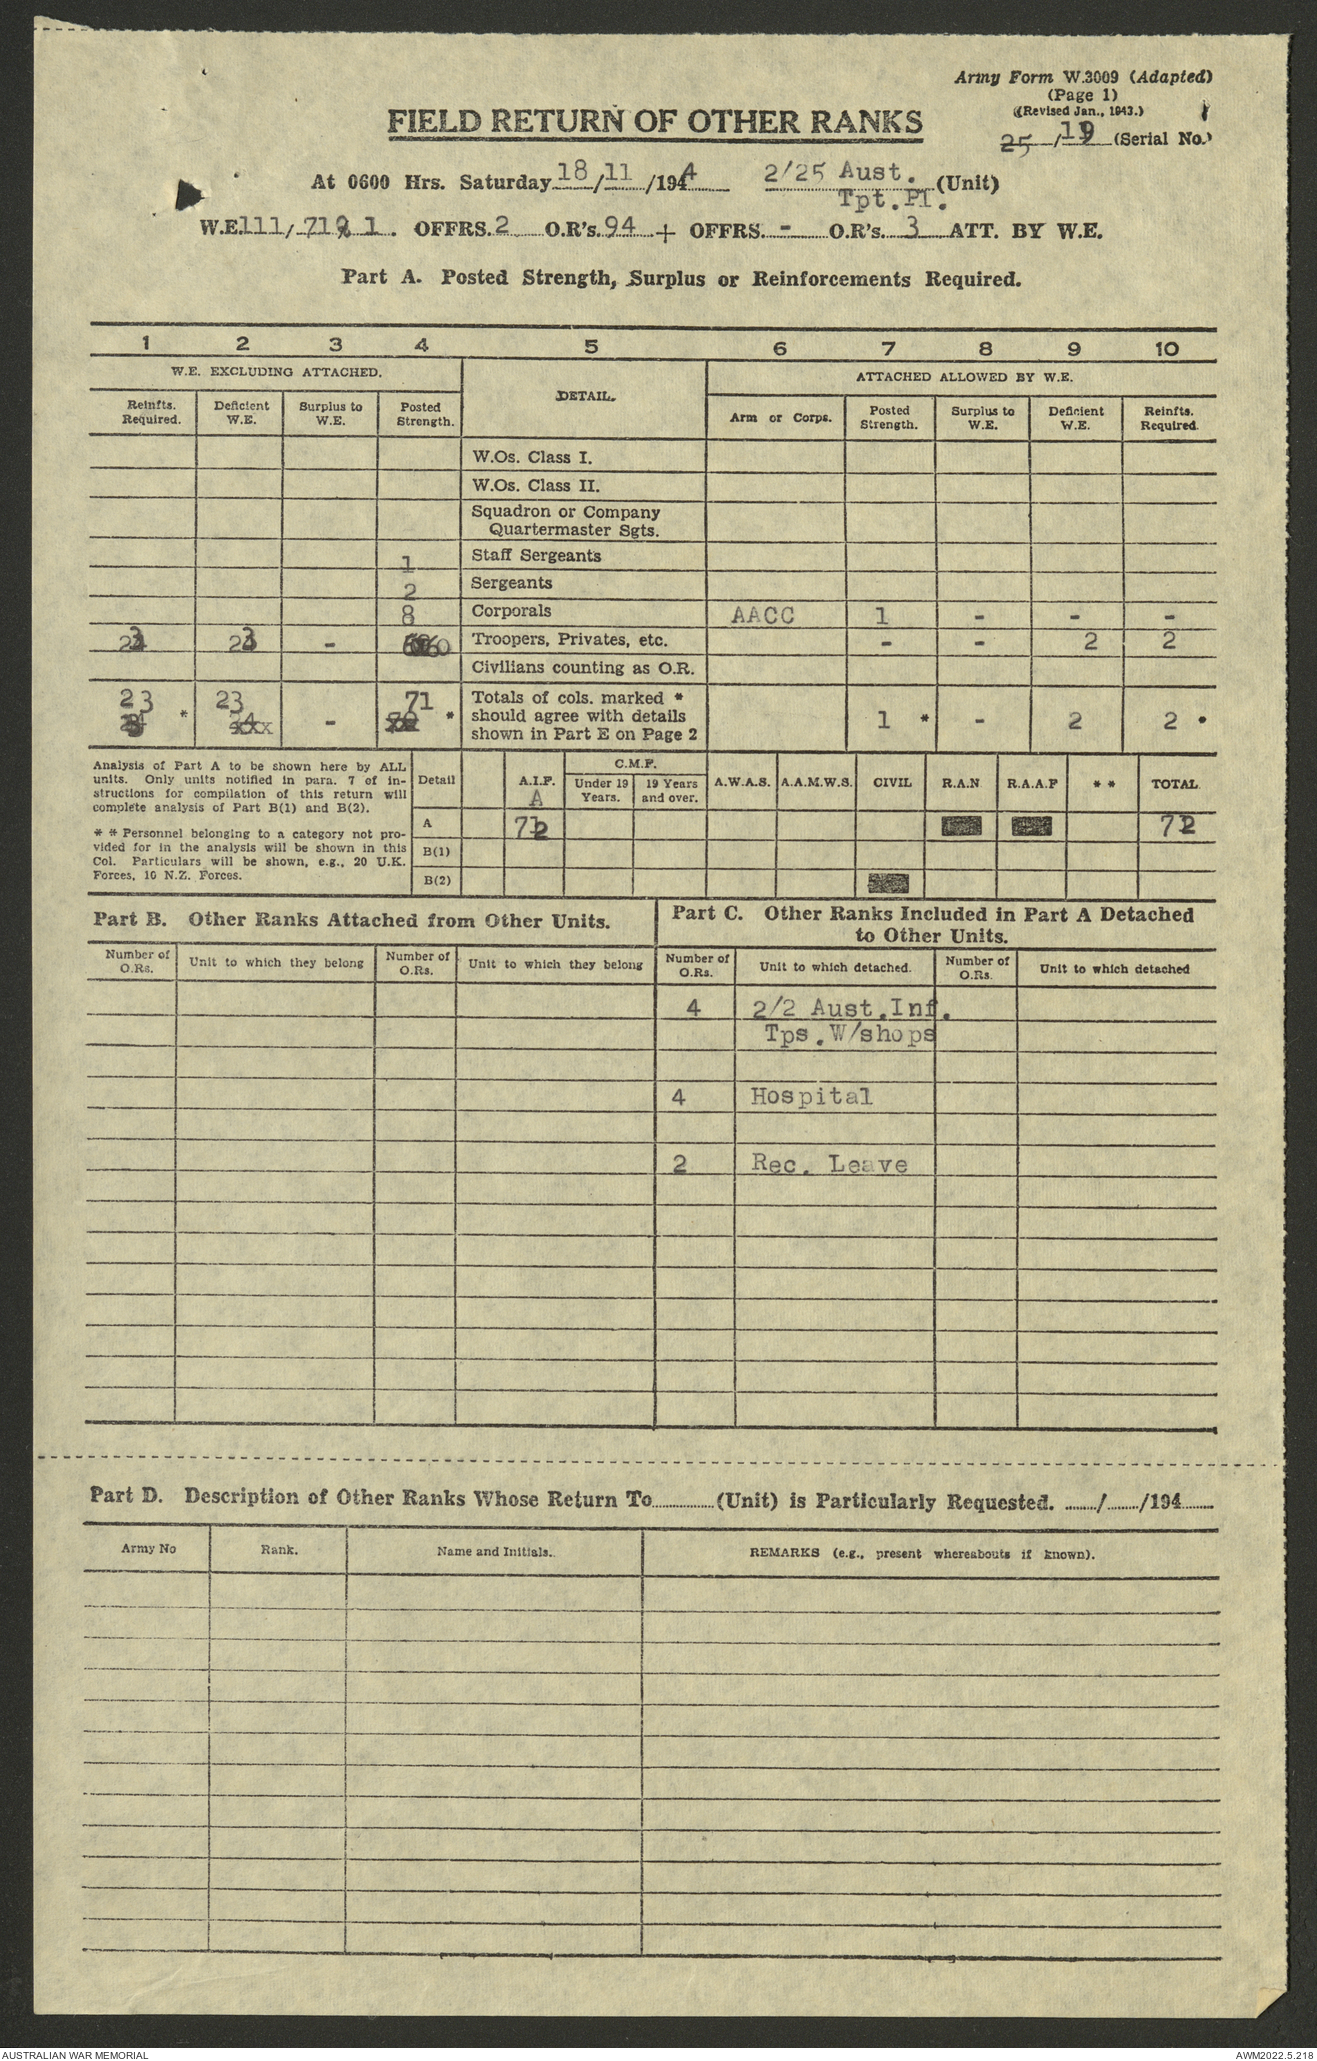 Army Form W.3009 (Adapted)
(Page 1)
(Revised Jan., 1943.)
FIELD RETURN OF OTHER RANKS
25/19 (Serial No.)
At 0600 Hrs. Saturday 18/11/1944 2/25 Aust. (Unit)
Tpt.Pl.
W.E. 111/ 1. OFFRS. 2 O.R's. 94 + OFFRS. - O.R's. 3 ATT. BY W.E.
Part A. Posted Strength, Surplus or Reinforcements Required.
1 2 3 4 5 6 7 8 9 10
W.E. EXCLUDING ATTACHED. DETAIL. ATTACHED ALLOWED BY W.E.
Reinfts. Required. Deficient W.E. Surplus to W.E. Posted Strength. Arm or Corps. Posted Strength. Surplus to W.E. Deficient W.E. Reinfts. Required.
W.Os. Class I.
W.Os. Class II.
Squadron or Company
Quartermaster Sgts.
1 Staff Sergeants
2 Sergeants
8 Corporals AACC 1 - - -
23 23 - 60 Troopers, Privates, etc. - - 2 2
Civilians counting as O.R.
23 23 71 Totals of cols. marked *
* - * should agree with details 1 * - 2 2 *
shown in Part E on Page 2
Analysis of Part A to be shown here by ALL
units. Only units notified in para. 7 of in-
structions for compilation of this return will
complete analysis of Part B(1) and B(2).
* * Personnel belonging to a category not pro-
vided for in the analysis will be shown in this
Col. Particulars will be shown, e.g., 20 U.K.
Forces, 10 N.Z. Forces.
C.M.F.
Detail A.I.F. Under 19 Years. 19 Years and over. A.W.A.S. A.A.M.W.S. CIVIL R.A.N R.A.A.F * * TOTAL
A
A 72 72
B(1)
B(2)
Part B. Other Ranks Attached from Other Units.
Part C. Other Ranks Included in Part A Detached
to Other Units.
Number of O.Rs. Unit to which they belong Number of O.Rs. Unit to which they belong Number of O.Rs. Unit to which detached. Number of O.Rs. Unit to which detached
4 2/2 Aust.Inf.
Tps.W/shops
4 Hospital
2 Rec. Leave
Part D. Description of Other Ranks Whose Return To (Unit) is Particularly Requested. / /194
Army No Rank. Name and Initials. REMARKS (e.g., present whereabouts if known).
AUSTRALIAN WAR MEMORIAL AWM2022.5.218